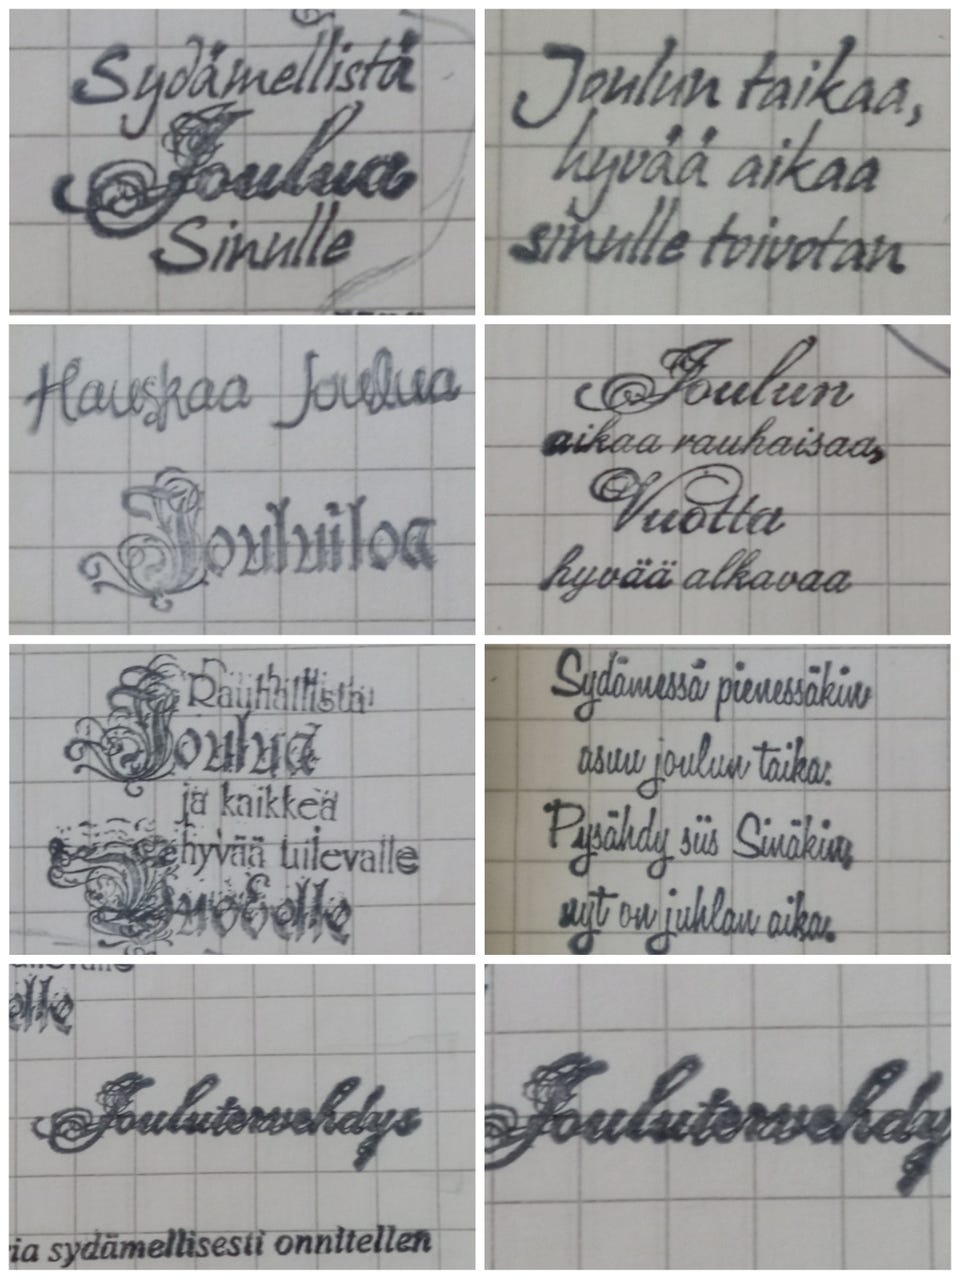 Sydämellistä
Joulua
Sinulle
Joulun taikaa,
hyvää aikaa
sinulle toivotan
Hauskaa Joulua
Jouluiloa
Joulun
aikaa rauhaisaa,
Vuotta
hyvää alkavaa
Rauhallista
Joulua
ja kaikkea
hyvää tulevalle
Vuodelle
Sydämessä pienessäkin
asuu joulun taika.
Pysähdy siis Sinäkin,
nyt on juhlan aika.
Joulutervehdys
sydämellisesti onnitellen
Joulutervehdy